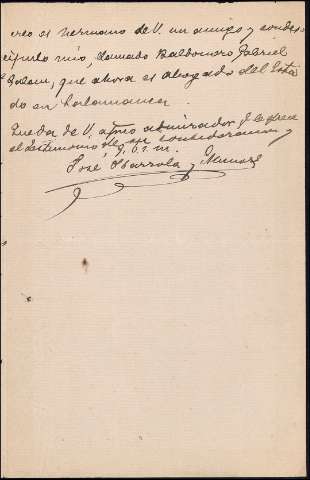 creo es hermano de V. un amigo y condis-
cípulo mio, llamado Baldomero Gabriel
y Galan, que ahora es abogado del Esta
do en Salamanca.
Queda de V. afmo admirador y le ofrece
el testimonio de su consideracion
q. b. s. m.
José Ibarrola y Munoz